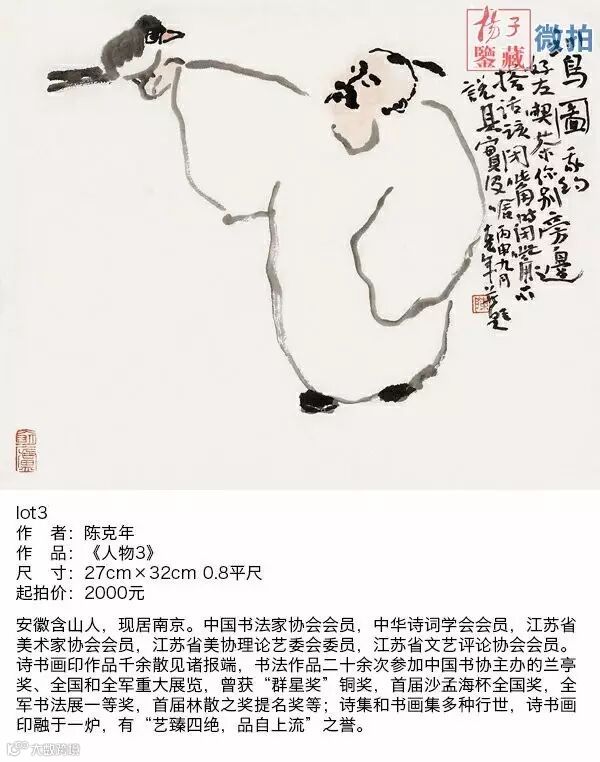 楊子
鑒藏
微拍
鸟圖 我约
好友喫茶你别旁邊
搭话该闭嘴时闭嘴不
説其實没啥 丙申九月
克年并题
lot3
作 者：陈克年
作 品：《人物3》
尺 寸：27cm×32cm 0.8平尺
起拍价：2000元
安徽含山人，现居南京。中国书法家协会会员，中华诗词学会会员，江苏省
美术家协会会员，江苏省美协理论艺委会委员，江苏省文艺评论协会会员。
诗书画印作品千余散见诸报端，书法作品二十余次参加中国书协主办的兰亭
奖、全国和全军重大展览，曾获“群星奖”铜奖，首届沙孟海杯全国奖，全
军书法展一等奖，首届林散之奖提名奖等；诗集和书画集多种行世，诗书画
印融于一炉，有“艺臻四绝，品自上流”之誉。
大数跨境